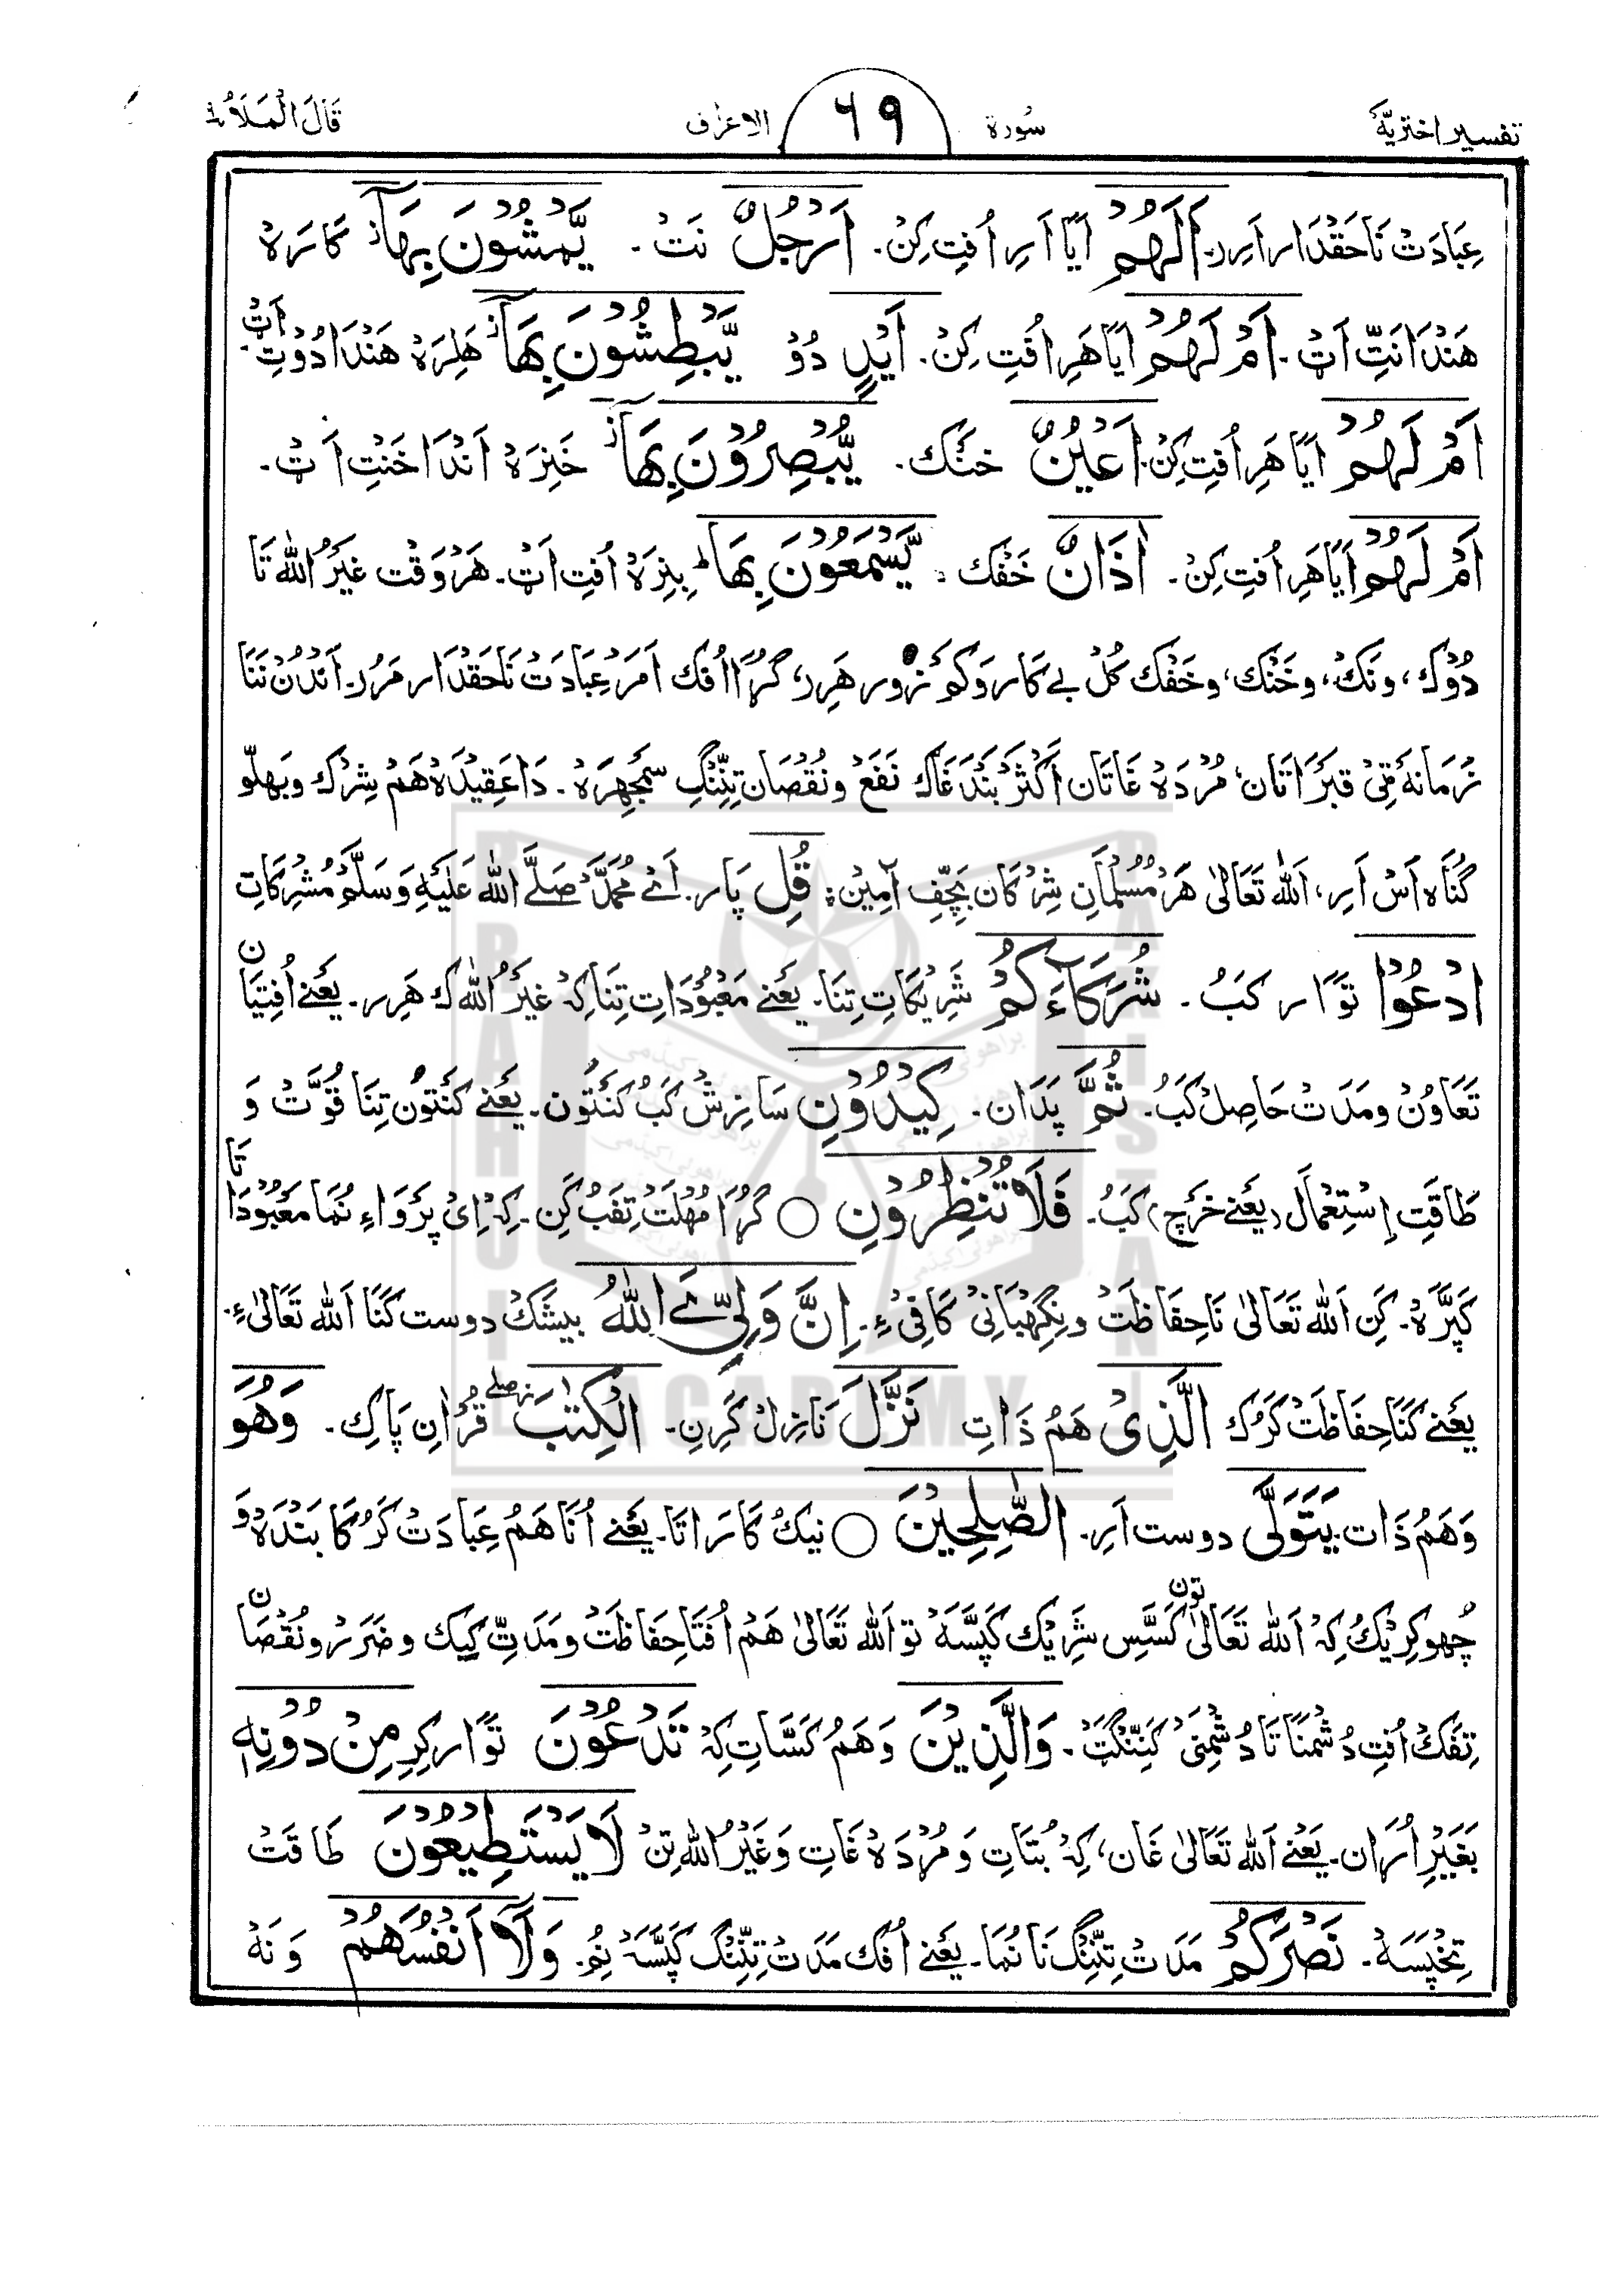 تفسیر اختریّہ سُورة ٦٩ الاعراف قَالَ الْمَلَاُ ٩
عِبَادَتْ نَا حَقْدَار اَرِر۔ اَلَهُمْ اَیَا اَرِ اُفتِ کِنْ۔ اَرْجُلٌ نَتْ۔ یَّمْشُوْنَ بِهَآ کَارَہْ
هَنْدَا نَتِّ اَتْ۔ اَمْ لَهُمْ اَیَا هَرِ اُفتِ کِنْ۔ اَیْدٍ دُوْ یَّبْطِشُوْنَ بِهَآ هَلِرَہْ هَنْدَا دُوْتِ اَتْ۔
اَمْ لَهُمْ اَیَا هَرِ اُفتِ کِنْ اَعْیُنٌ خَنْک۔ یُّبْصِرُوْنَ بِهَآ خَنِرَہْ اَنْدَا خَنْتِ اَتْ۔
اَمْ لَهُمْ اَیَا هَرِ اُفتِ کِنْ۔ اٰذَانٌ خَفْک۔ یَّسْمَعُوْنَ بِهَا ط بِنِرَہْ اُفتِ اَتْ۔ هَرْ وَقْت غَیْرُ اللّٰه تَا
دُوْک، و نَکْ، و خَنْک، و خَفْک کُلْ بے کَار و کَم زور هَرِر، گُرَا اُفک اَمَرْ عِبَادَتْ نَا حَقْدَار مَرُر۔ اَنْدُنْ نَنَا
زَمَانَہ ٹِیْ قَبْرَاتَان، مُرْدَہ غَاتَان اَکْثَرْ بَنْدَغَاک نَفَعْ و نُقْصَان تِنِّنْگِ سَمْجِهرَہ۔ دَا عَقِیْدَہ هَمْ شِرْک و بَهلّو
گُنَاہ اَسْ اَرِ، اَللّٰه تَعَالیٰ هَرْ مُسْلمَانِ شِرْکَان بَچِّفِ آمِیْن؛ قُلِ پَار۔ اَےْ مُحَمَّدْ صَلَّے اللّٰه عَلَیْهِ وَسَلَّمْ مُشْرِکَاتِ
ادْعُوْا تَوَار کَبُ۔ شُرَكَآءَكُمْ شَرِیْکَاتِ تِنَا۔ یَعْنے مَعْبُوْدَاتِ تِنَا کِہ غَیْرُ اللّٰه ک هَرِر۔ یَعْنے اُفتِیَان
تَعَاوُنْ و مَدَتْ حَاصِلْ کَبُ۔ ثُمَّ پَدَان۔ كِیْدُوْنِ سَازِشْ کَبُ کَنْتُون۔ یَعْنے کَنْتُوْن تِنَا قُوَّتْ وَ
طَاقَتِ اِسْتِعْمَال (یَعْنے خَرْچ) کَبُ۔ فَلَا تُنْظِرُوْنِ ○ گُرَا مُهْلَتْ تِفَبُ کَنِ۔ کِہ اِیْ پَرْوَاءِ نُمَا مَعْبُوْدَاتَا
کَپَّرَہْ۔ کَنِ اَللّٰه تَعَالیٰ نَا حِفَاظَتْ و نِگِهْبَانِیْ کَافِیْ ءِ۔ اِنَّ وَلِیِّ ےَ اللّٰهُ بیشَکْ دوست کَنَا اَللّٰه تَعَالیٰ ءِ۔
یَعْنے کَنَا حِفَاظَتْ کَرُک الَّذِیْ هَمُ ذَاتِ نَزَّلَ نَازِلْ کَرِنِ۔ الْكِتٰبَ صلے قُرْاٰنِ پَاک۔ وَهُوَ
وَهَمُ ذَات یَتَوَلَّی دوست اَرِ۔ الصّٰلِحِیْنَ ○ نیکْ کَارَاتَا۔ یَعْنے اُنَا هَمُ عِبَادَتْ کَرُکَا بَنْدَہ وَ
چُهوکِرِیْکُ کِہ اَللّٰه تَعَالیٰ تون کَسَّسِ شَرِیْک کَپَّسَہ تو اَللّٰه تَعَالیٰ هَمْ اُفتَا حِفَاظَتْ و مَدَتِّ کِیک و ضَرَرْ و نُقْصَان
تِفَکْ اُفتِ دُشْمَنَاتَا دُشْمِنَیْ کَنِّنْگَتْ۔ وَالَّذِیْنَ وَهَمُ کَسَّاتِ کِہ تَدْعُوْنَ تَوَار کِرِ مِنْ دُوْنِهٖ
بَغَیْرِ اُرَان۔ یَعْنے اَللّٰه تَعَالیٰ غَان، کِہ بُتَاتِ وَ مُرْدَہ غَاتِ وَ غَیْرُ اللّٰه تِنْ لَا یَسْتَطِیْعُوْنَ طَاقَتْ
تِخْپَسَہْ۔ نَصْرَكُمْ مَدَتْ تِنِّنْگ نَا نُمَا۔ یَعْنے اُفک مَدَتْ تِنِّنْگ کَپَّسَہ نُم۔ وَلَآ اَنْفُسَهُمْ وَ نَهْ
BRAHUI ACADEMY PAKISTAN